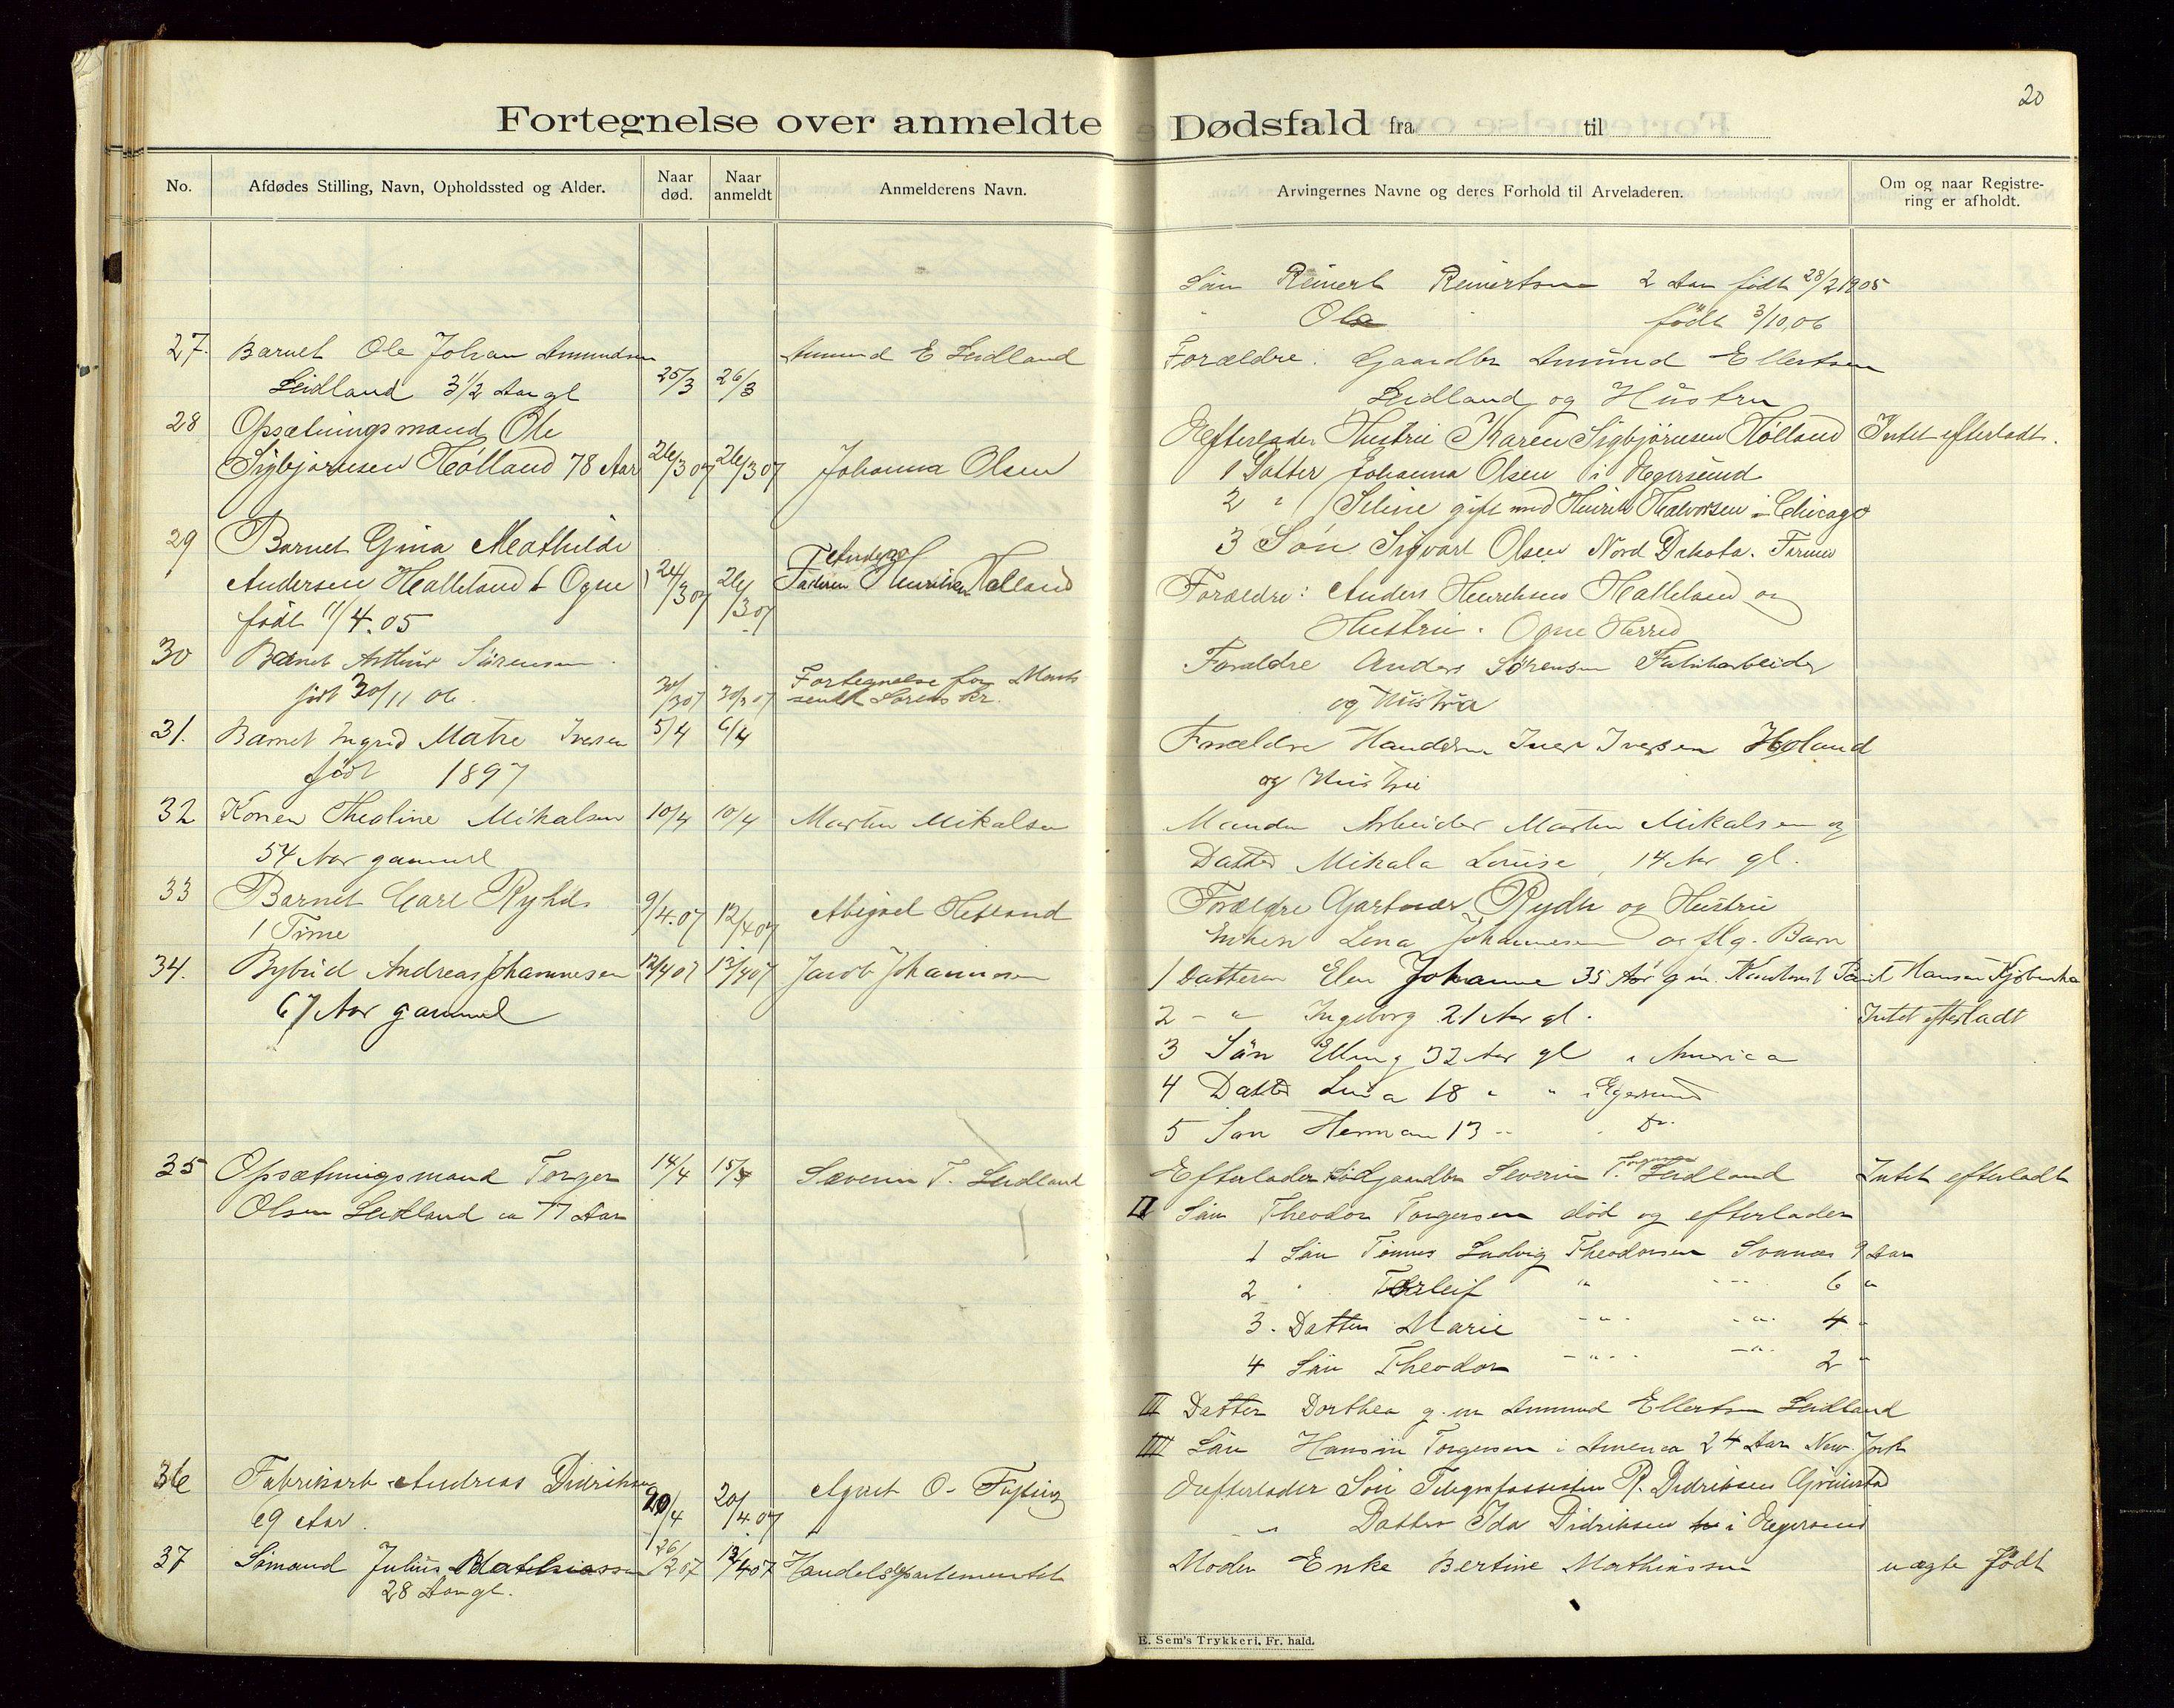 20
Fortegnelse over anmeldte Dødsfald fra til
No.
Afdødes Stilling, Navn, Opholdssted og Alder.
Naar død.
Naar anmeldt
Anmelderens Navn.
Arvingernes Navne og deres Forhold til Arveladeren.
Om og naar Registrering er afholdt.
Sön Reinert Reinertsen 2 Aar födt 28/2 1905
" Ola födt 3/10,06
27. Barnet Ole Johan Amundsen
Leidland 3 1/2 Aar gl 25/3 26/3
Amund E Leidland
Forældre: Gaardbr Amund Ellertsen
Leidland og Hustru
28 Opsætningsmand Ole
Sigbjörnsen Hölland 78 Aar 26/3 07 26/3 07 Johanna Olsen
Efterlader Hustru Karen Sigbjörnsen Hölland Intet efterladt.
1 Datter Johanna Olsen i Egersund
2 " Seline gift med Hinrik Halvorsen i Chicago
3 Sön Sigvart Olsen Nord Dakota. Farmer
29 Barnet Gina Mathilde
Andersen Halleland t Ogne 24/3 07 26/3 07
födt 11/4.05
Faderen Henriksen Helland
Forældre: Anders Henriksen Halleland og
Hustru. Ogne Herred
30 Barnet Arthur Sörensen
födt 30/11 06. 30/3 07 30/3 07
Fortegnelse for Marts
sendt Sorenskr.
Forældre Anders Sörensen Fabrikarbeider
og Hustru
31. Barnet Ingrid Matre Iversen 5/4 6/4
födt 1897
Forældre Handelsm Iver Iversen Holand
og Hustru
32 Konen Theoline Mikalsen 10/4 10/4 Martin Mikalsen
54 Aar gammel
Manden Arbeider Martin Mikalsen og
Datter Mikala Louise, 14 Aar gl.
33 Barnet Carl Rydh
1 Time 9/4.07 12/4 07 Abigael Hetland
Forældre Gartner Rydh og Hustru
34. Bybud Andreas Johannesen 12/4 07 13/4 07 Jacob Johannesen
67 Aar gammel
Enken Lena Johannesen og flg. Barn
1 Datteren Elen Johanne 35 Aar g m. Hansen Kjöbenha
2 - " Ingeborg 21 Aar gl. Intet efterladt
3 Sön Elling 32 Aar gl i America
4 Datter Lina 18 " " i Egersund
5 Sön Herman 13 " Do.
35 Opsætningsmand Torger 14/4 15/4 Severin T. Leidland
Olsen Leidland ca 77 Aar
Efterlader Gaardbr Severin T. Torgersen Leidland Intet efterladt
II Sön Theodor Torgersen död og efterlader
1 Sön Tönnes Ludvig Theodorsen Svanæs 9 Aar
2 " Torleif " " 6 "
3. Datter Marie " " 4 "
4 Sön Theodor " " 2 "
III Datter Dorthea g. m Amund Ellertsen Leidland
IIII Sön Hansin Torgersen i America 24 Aar New York
36 Fabrikarb Andreas Didriksen
69 Aar. 20/4 20/4.07 Agnet O.
Efterlader Sön Telegrafassistent R. Didriksen Grimstad
- " Datter Ida Didriksen i Egersund
37 Sömand Julius Mathiassen 26/2 07 12/4 07 Handelsdepartementet
28 Aar gl.
Moder Enke Bertine Mathiassen uægte födt
E. Sem's Trykkeri, Fr. hald.